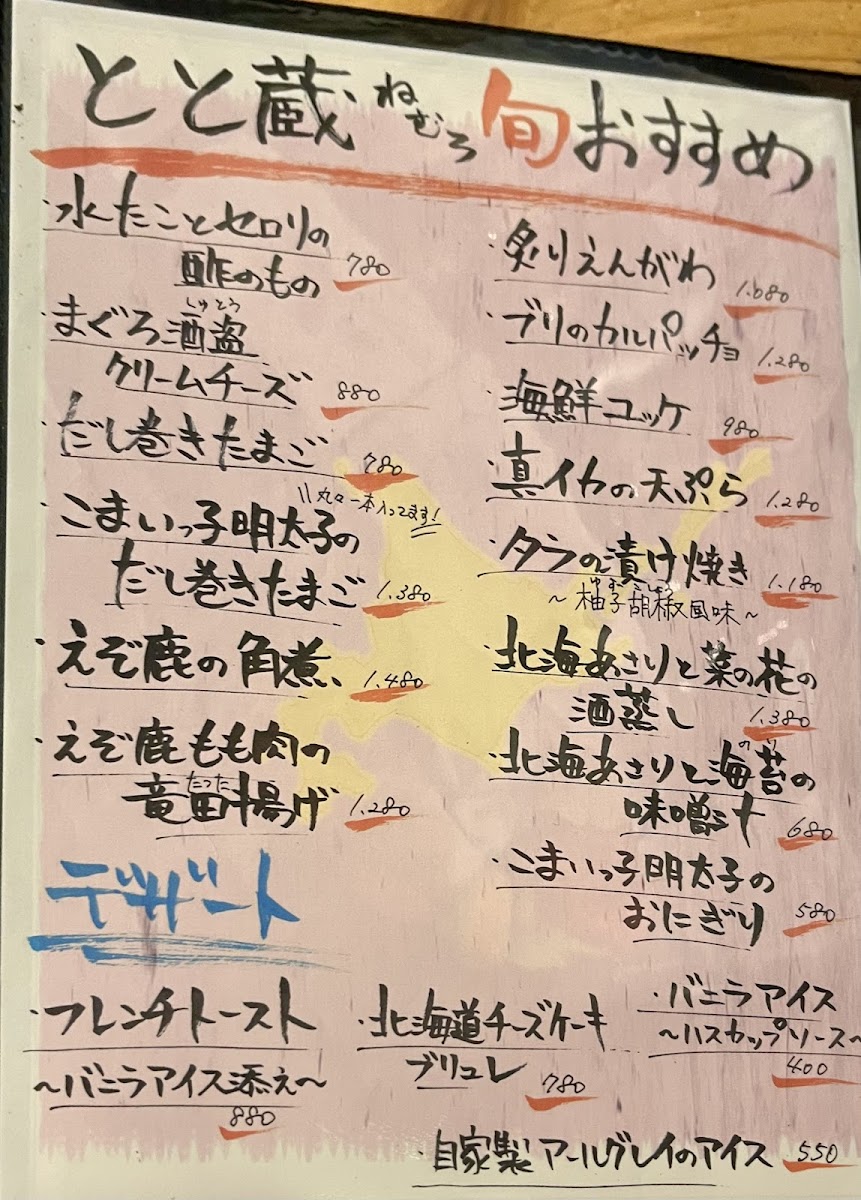 とと蔵 ねむろ 旬おすすめ
・水たことセロリの
酢のもの 780
しゅとう
・まぐろ酒盗
クリームチーズ 880
・だし巻きたまご 780
\\丸々一本入ってます!
・こまいっ子明太子の
だし巻きたまご 1.380
・えぞ鹿の角煮 1.480
・えぞ鹿もも肉の
たつた
竜田揚げ 1.280
・炙りえんがわ 1.080
・ブリのカルパッチョ 1.280
・海鮮ユッケ 980
・真イカの天ぷら 1.280
・タラの漬け焼き 1.180
ゆずこしょう
~柚子胡椒風味~
・北海あさりと菜の花の
酒蒸し 1.380
のり
・北海あさりと海苔の
味噌汁 680
・こまいっ子明太子の
おにぎり 580
デザート
・フレンチトースト
~バニラアイス添え~
880
・北海道チーズケーキ
ブリュレ 780
・バニラアイス
~ハスカップソース~
400
・自家製アールグレイのアイス 550